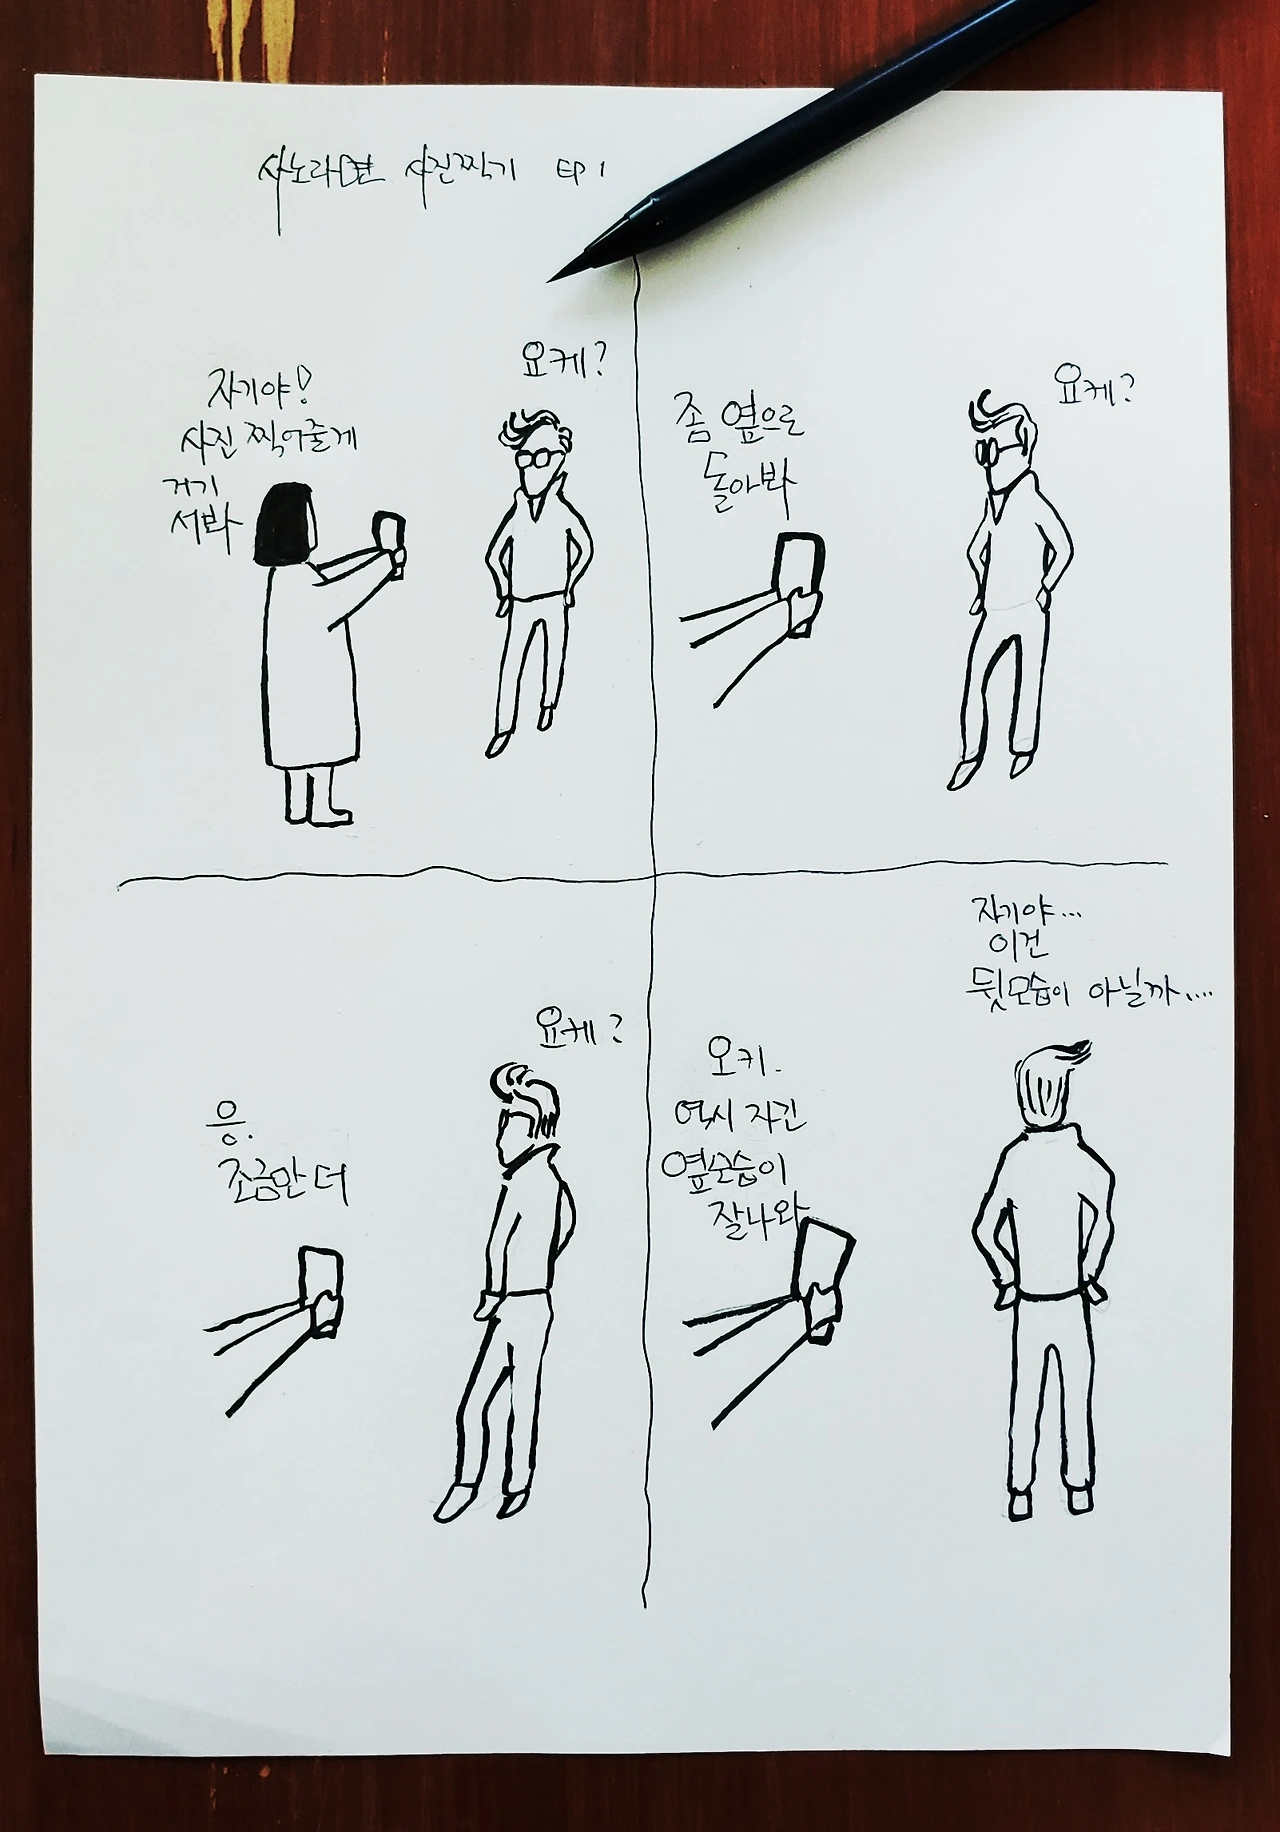 사노라면 사진찍기 EP 1
자기야!
사진 찍어줄게
거기
서봐
요케?
좀 옆으로
돌아봐
요케?
응.
조금만 더
요케?
오키.
역시 자긴
옆모습이
잘나와
자기야...
이건
뒷모습이 아닐까....